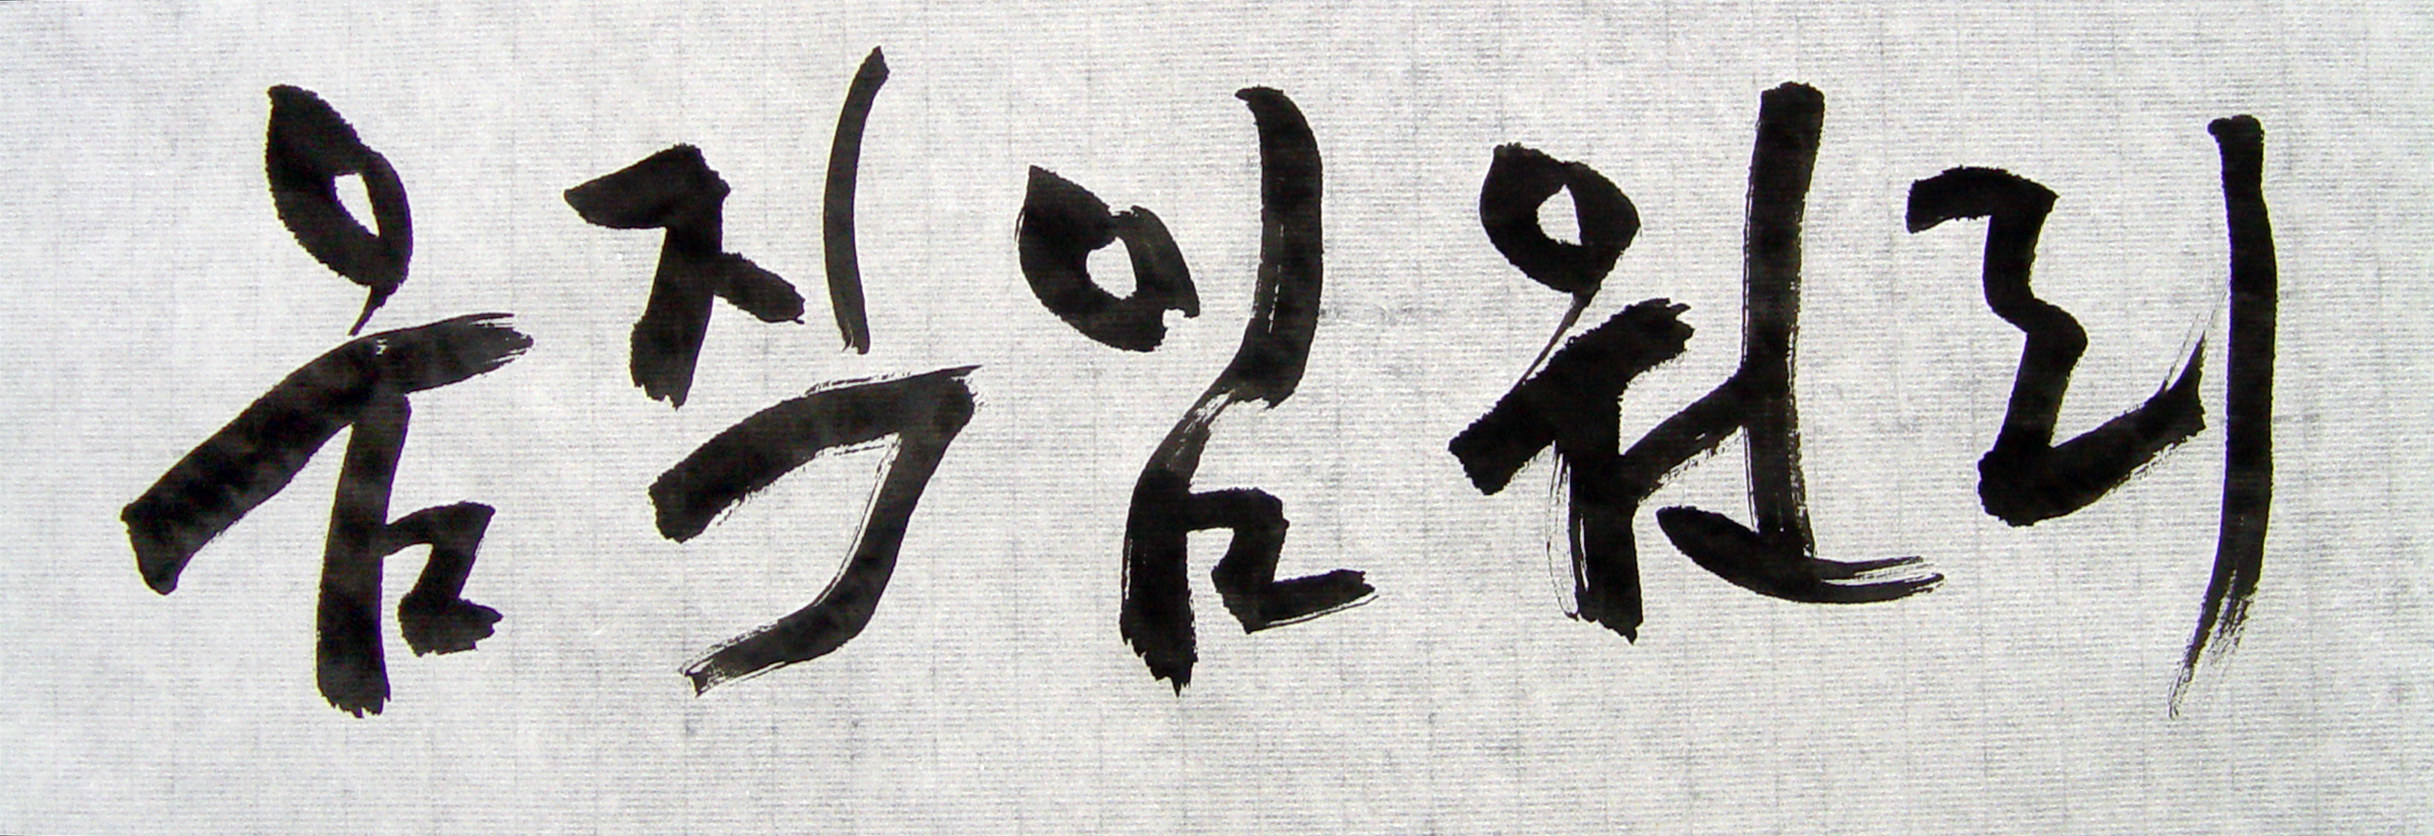 움직임원리